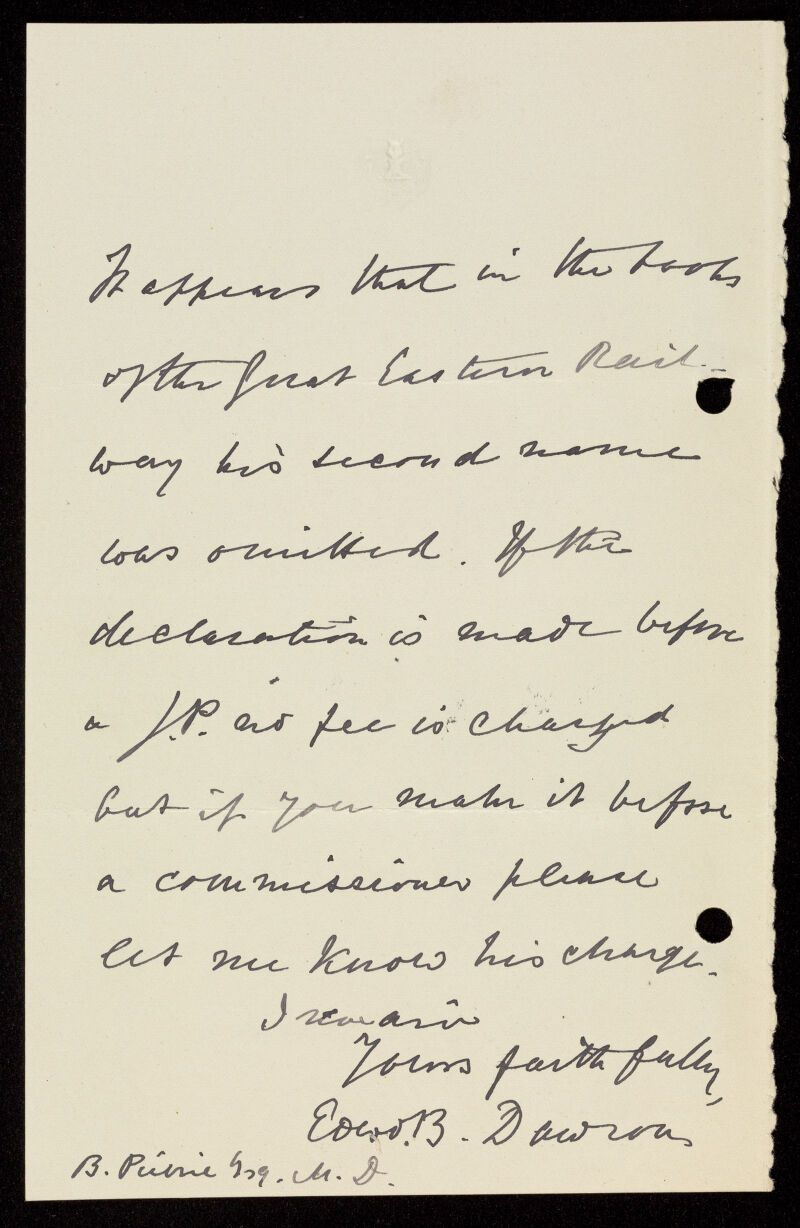 It appears that in the books
of the Great Eastern Rail-
way his second name
was omitted. If the
declaration is made before
a J.P. no fee is charged
but if you make it before
a commissioner please
let me know his charge.
I remain
Yours faithfully,
Edwd. B. Dawson
B. Esq. M. D.